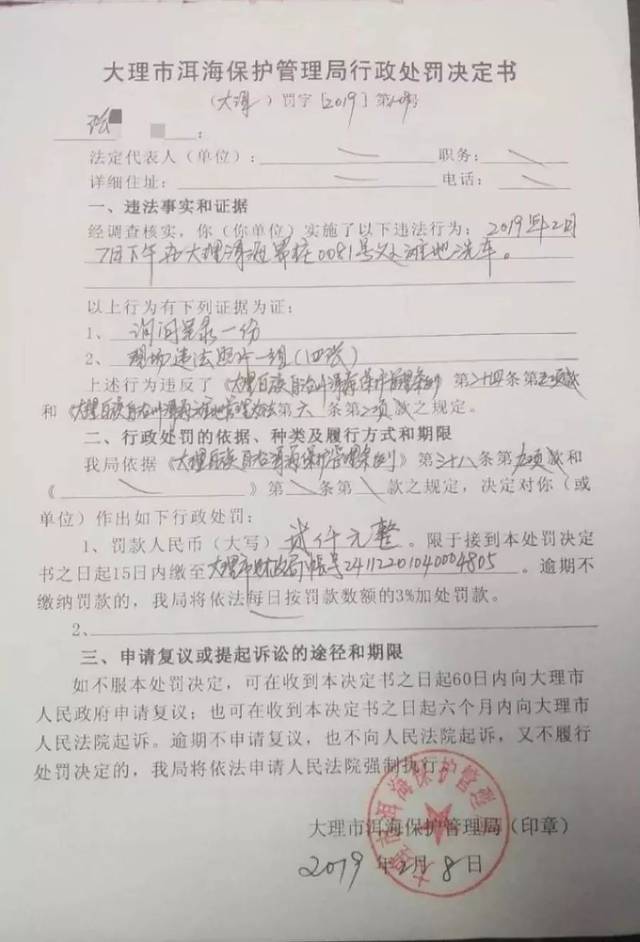 大理市洱海保护管理局行政处罚决定书
（大洱）罚字[2019]第 号
张
法定代表人（单位）： 职务：
详细住址： 电话：
一、违法事实和证据
经调查核实，你（你单位）实施了以下违法行为：2019年2月
7日下午在大理洱海界桩0081号处滩地洗车。
以上行为有下列证据为证：
1、询问笔录一份
2、现场违法照片一组（四张）
上述行为违反了《大理白族自治州洱海保护管理条例》第二十四条第五项款
和《大理白族自治州洱海滩地管理办法》第六条第二项款之规定。
二、行政处罚的依据、种类及履行方式和期限
我局依据《大理白族自治州洱海保护管理条例》第三十八条第五项款和
《 》第 条第 款之规定，决定对你（或
单位）作出如下行政处罚：
1、罚款人民币（大写）贰仟元整。限于接到本处罚决定
书之日起15日内缴至大理市财政局帐号24112201040004805。逾期不
缴纳罚款的，我局将依法每日按罚款数额的3%加处罚款。
2、
三、申请复议或提起诉讼的途径和期限
如不服本处罚决定，可在收到本决定书之日起60日内向大理市
人民政府申请复议；也可在收到本决定书之日起六个月内向大理市
人民法院起诉。逾期不申请复议，也不向人民法院起诉，又不履行
处罚决定的，我局将依法申请人民法院强制执行。
大理市洱海保护管理局
大理市洱海保护管理局（印章）
2019年2月8日